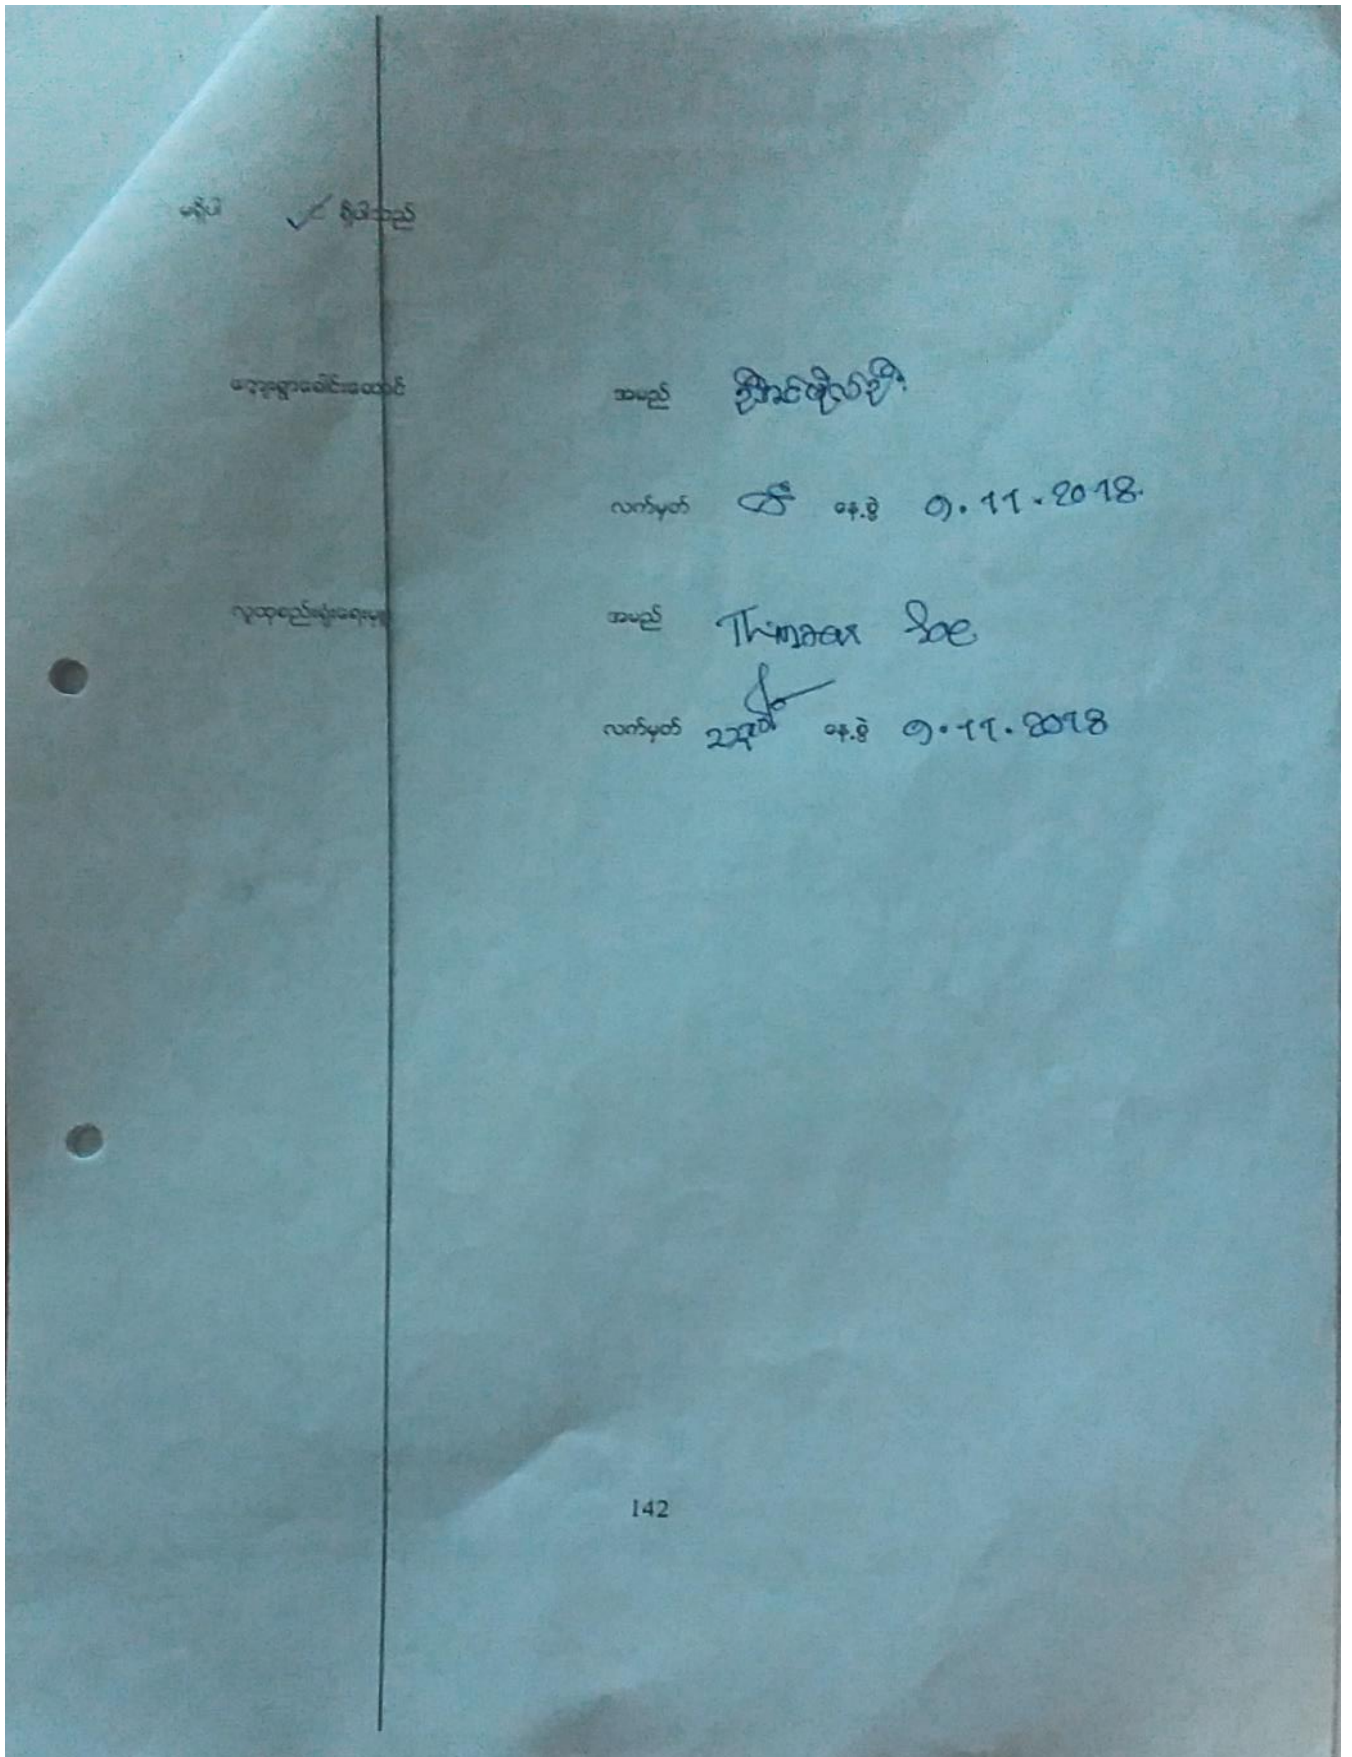 မရှိပါ ✓ ရှိပါသည်
ကျေးရွာခေါင်းဆောင် အမည်
လက်မှတ် နေ့စွဲ 9.11.2018.
လူထုစည်းရုံးရေးမှူး အမည် Thinzar Soe
လက်မှတ် နေ့စွဲ 9.11.2018
142